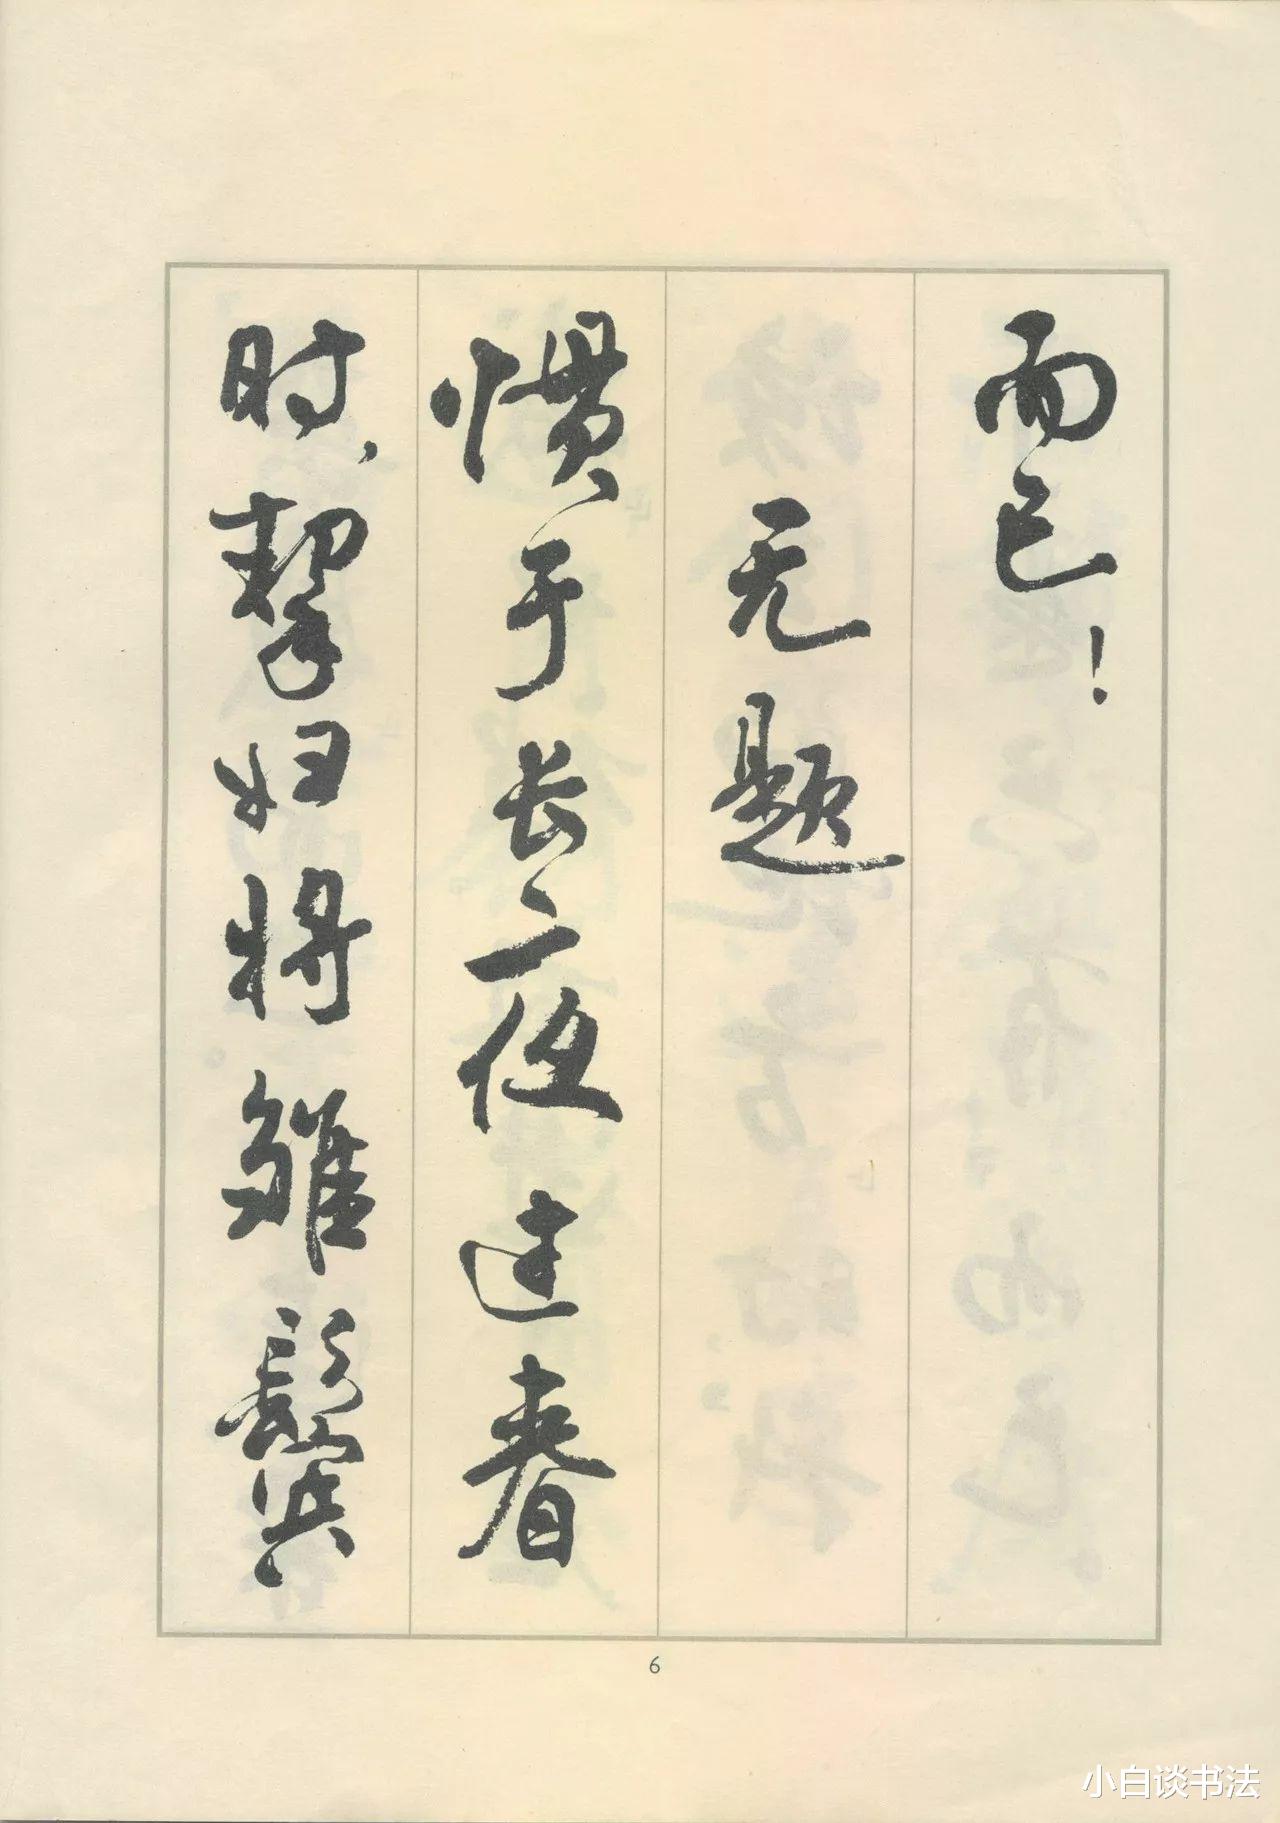 而已！
无题
惯于长夜过春
时，挈妇将雏鬓
6
小白谈书法